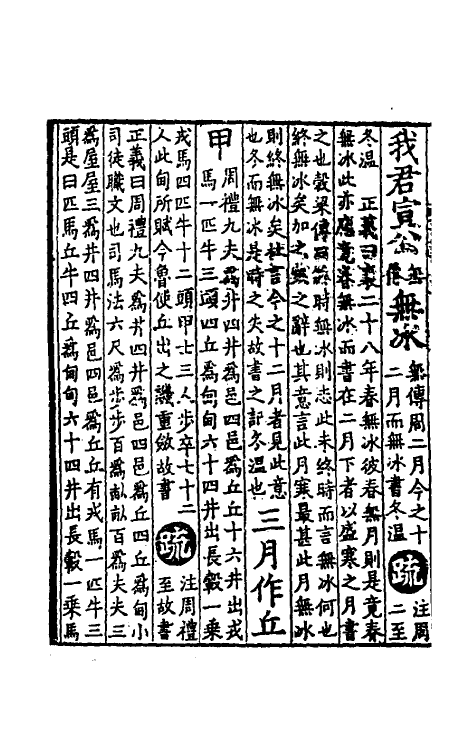 我君宣公無傳無冰無傳周二月今之十
二月而無冰書冬溫疏注周
二至
冬溫 正義曰襄二十八年春無冰彼春無月則是竟春
無冰此亦應竟春無冰而書在二月下者以盛寒之月書
之也穀梁傳曰終時無冰則志此未終時而言無冰何也
終無冰矣加之寒之辭也其意言此月寒最甚此月無冰
則終無冰矣杜言今之十二月者見此意
也冬而無冰是時之失故書之記冬溫也
三月作丘
甲周禮九夫爲井四井爲邑四邑爲丘丘十六井出戎
馬一匹牛三頭四丘爲甸甸六十四井出長轂一乘
戎馬四匹牛十二頭甲士三人步卒七十二
人此甸所賦今魯使丘出之譏重斂故書
疏注周禮
至故書
正義曰周禮九夫爲井四井爲邑四邑爲丘四丘爲甸小
司徒職文也司馬法六尺爲步步百爲畝畝百爲夫夫三
爲屋屋三爲井四井爲邑四邑爲丘丘有戎馬一匹牛三
頭是曰匹馬丘牛四丘爲甸甸六十四井出長轂一乘馬